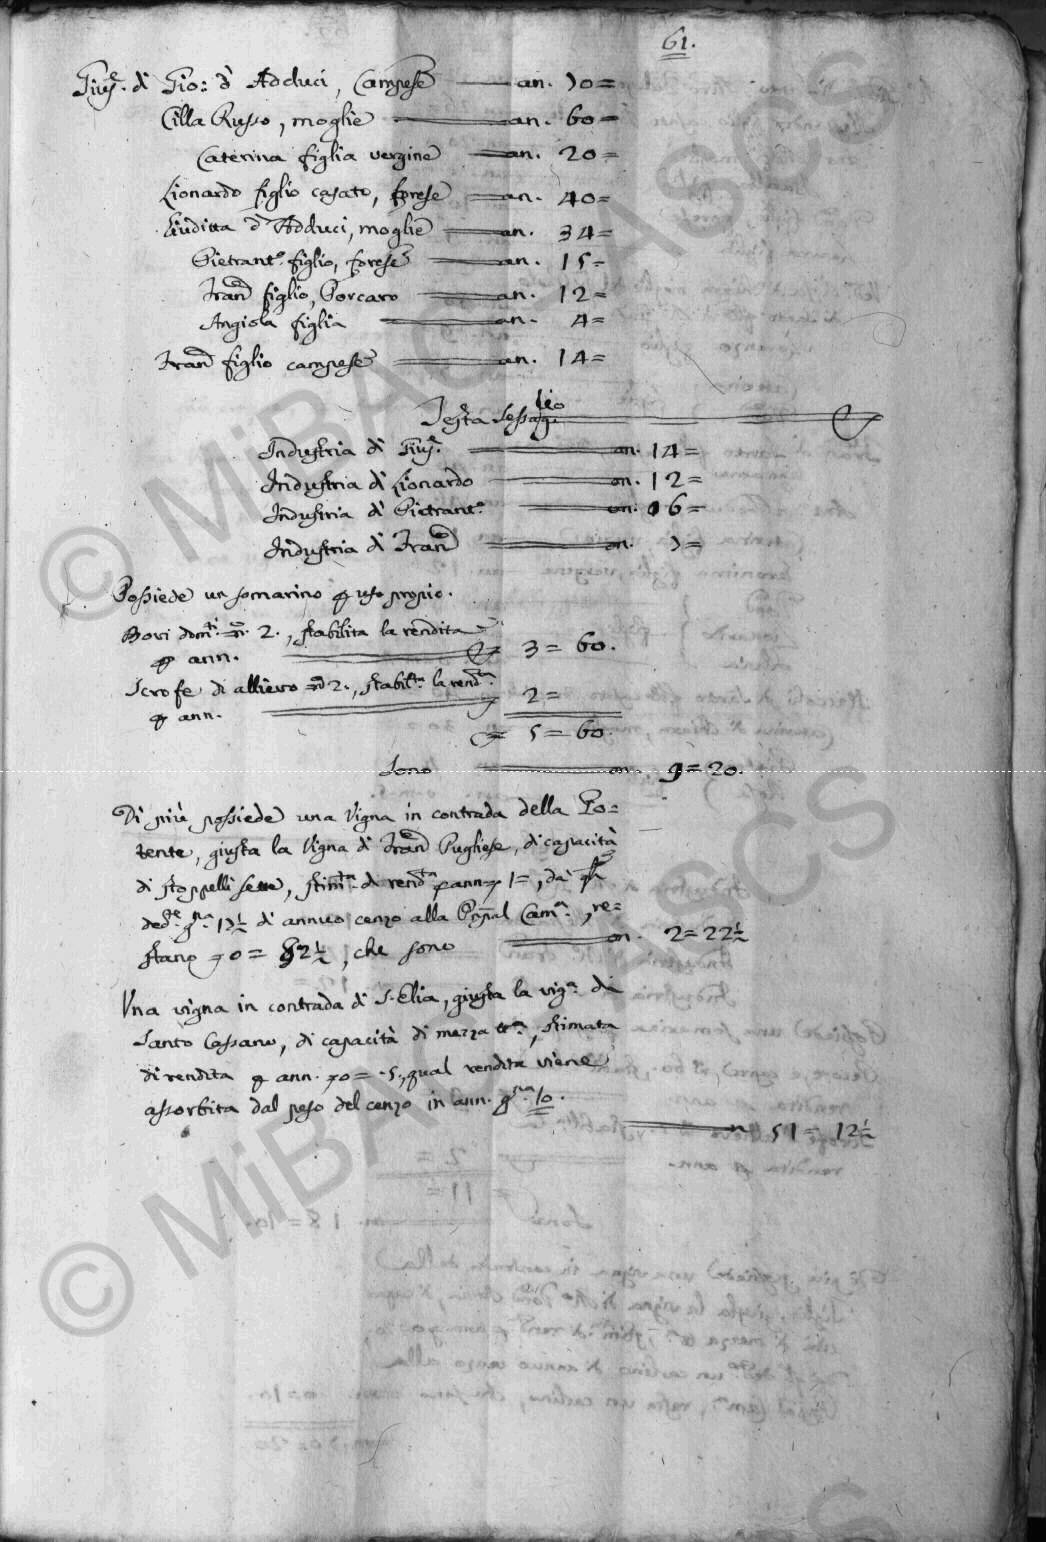 61.
Gius.e di Gio: d' Adduci, Campese — an. 70=
Cilla Russo, moglie — an. 60=
Caterina figlia vergine — an. 20=
Lionardo figlio casato, forese — an. 40=
Giuditta d'Adduci, moglie — an. 34=
Pietrant.o figlio, forese — an. 15=
Fran.co figlio, Porcaro — an. 12=
Angiola figlia — an. 4=
Fran.co figlio campese — an. 14=
Testa
Industria di Gius.e — on. 14=
Industria di Lionardo — on. 12=
Industria di Pietrant.o — on. 06=
Industria di Fran.co — on.
Possiede un somarino uso proprio.
Bovi dom.ti n. 2., stabilita la rendita
ann. 3=60.
Scrofe di allievo n. 2., stabil.ta la rend.ta
ann. 2=
5=60.
Sono — on. 9=20.
Di più possiede una Vigna in contrada della Po=
tente, giusta la Vigna di Fran.co Pugliese, di capacità
di stoppelli sette, stim.ta di rend.ta ann. 1=, da
ded.e g.na 17½ di annuo cenzo alla Cam.a, re=
stano 0=82½, che sono — on. 2=22½
Una vigna in contrada di S. Elia, giusta la vig.a di
Santo Cassano, di capacità di mezza tt.a, stimata
di rendita ann. 0=.5., qual rendita viene
assorbita dal peso del cenzo in ann. g.na 10.
51=12½
© MiBAC - ASCS
© MiBAC - ASCS